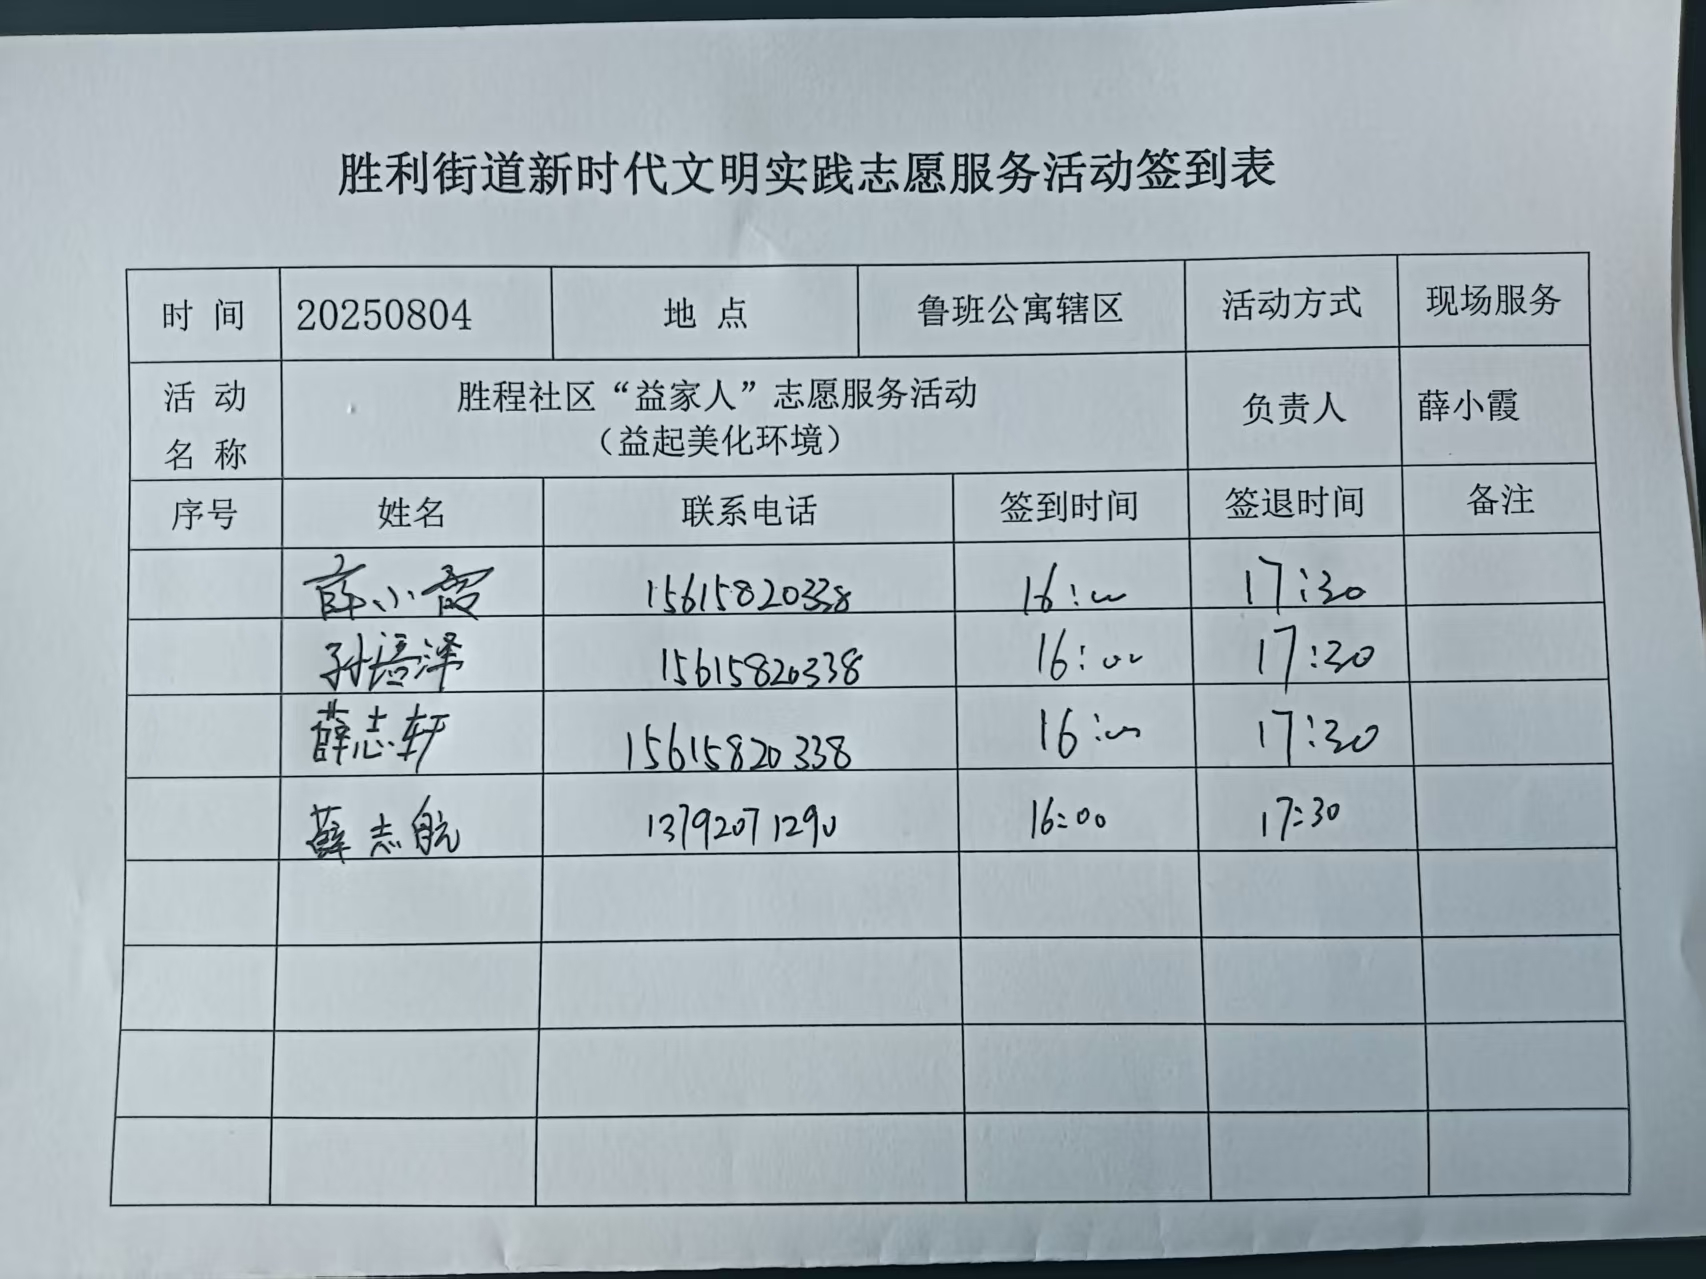 胜利街道新时代文明实践志愿服务活动签到表
时 间 20250804 地 点 鲁班公寓辖区 活动方式 现场服务
活 动 名 称 胜程社区“益家人”志愿服务活动 （益起美化环境） 负责人 薛小霞
序号 姓名 联系电话 签到时间 签退时间 备注
薛小霞 15615820338 16:00 17:30
孙培泽 15615820338 16:00 17:30
薛志轩 15615820338 16:00 17:30
薛志航 13792071290 16:00 17:30